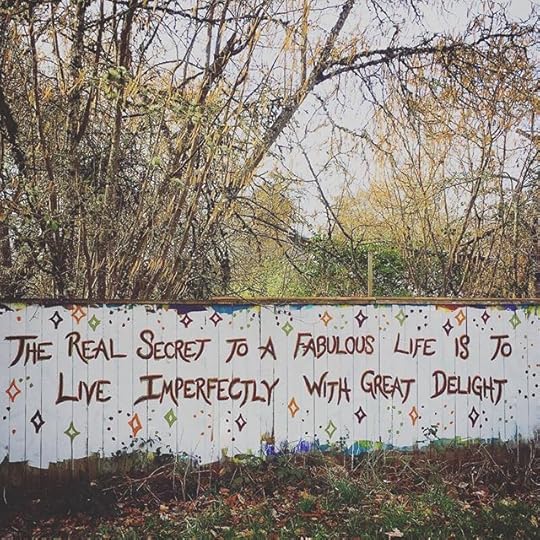 The Real Secret to a Fabulous Life is to
Live Imperfectly with Great Delight